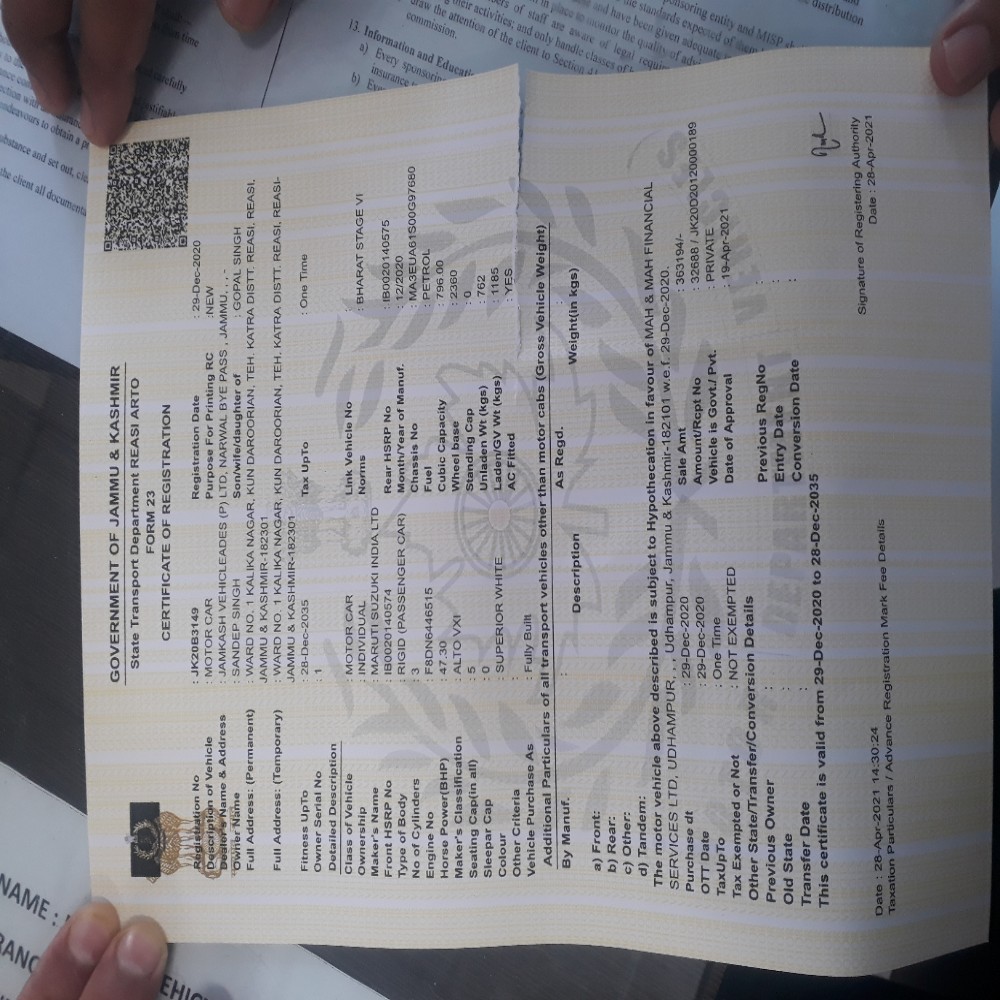 GOVERNMENT OF JAMMU & KASHMIR
State Transport Department REASI ARTO
FORM 23
CERTIFICATE OF REGISTRATION
Registration No : JK20B3149 Registration Date : 29-Dec-2020
Description of Vehicle : MOTOR CAR Purpose For Printing RC : NEW
Dealer's Name & Address : JAMKASH VEHICLEADES (P) LTD, NARWAL BYE PASS , JAMMU, , , -
Owner Name : SANDEP SINGH Son/wife/daughter of : GOPAL SINGH
Full Address: (Permanent) : WARD NO. 1 KALIKA NAGAR, KUN DAROORIAN, TEH. KATRA DISTT. REASI, REASI,
JAMMU & KASHMIR-182301
Full Address: (Temporary) : WARD NO. 1 KALIKA NAGAR, KUN DAROORIAN, TEH. KATRA DISTT. REASI, REASI-
JAMMU & KASHMIR-182301
Fitness UpTo : 28-Dec-2035 Tax UpTo : One Time
Owner Serial No : 1
Detailed Description
Class of Vehicle : MOTOR CAR Link Vehicle No
Ownership : INDIVIDUAL Norms : BHARAT STAGE VI
Maker's Name : MARUTI SUZUKI INDIA LTD
Front HSRP No : IB0020140574 Rear HSRP No : IB0020140575
Type of Body : RIGID (PASSENGER CAR) Month/Year of Manuf. : 12/2020
No of Cylinders : 3 Chassis No : MA3EUA61S00G97680
Engine No : F8DN6446515 Fuel : PETROL
Horse Power(BHP) : 47.30 Cubic Capacity : 796.00
Maker's Classification : ALTO VXI Wheel base : 2360
Seating Cap(in all) : 5 Standing Cap : 0
Sleepar Cap : 0 Unladen Wt (kgs) : 762
Colour : SUPERIOR WHITE Laden/GV Wt (kgs) : 1185
Other Criteria : AC Fitted : YES
Vehicle Purchase As : Fully Built
Additional Particulars of all transport vehicles other than motor cabs (Gross Vehicle Weight)
By Manuf. : As Regd. :
Description Weight(in kgs)
a) Front:
b) Rear:
c) Other:
d) Tandem:
The motor vehicle above described is subject to Hypothecation in favour of MAH & MAH FINANCIAL
SERVICES LTD, UDHAMPUR, , , Udhampur, Jammu & Kashmir-182101 w.e.f. 29-Dec-2020.
Purchase dt : 29-Dec-2020 Sale Amt : 363194/-
OTT Date : 29-Dec-2020 Amount/Rcpt No : 32688 / JK20D20120000189
TaxUpTo : One Time Vehicle is Govt./ Pvt. : PRIVATE
Tax Exempted or Not : NOT EXEMPTED Date of Approval : 19-Apr-2021
Other State/Transfer/Conversion Details
Previous Owner : Previous RegNo :
Old State : Entry Date :
Transfer Date : Conversion Date :
This certificate is valid from 29-Dec-2020 to 28-Dec-2035
Signature of Registering Authority
Date : 28-Apr-2021 14:30:24 Date : 28-Apr-2021
Taxation Particulars / Advance Registration Mark Fee Details
13. Information and Educati
a) Every sponsoring
insurance
b)
commission.
draw the attention of the client to Section 41
distribution
NAME :